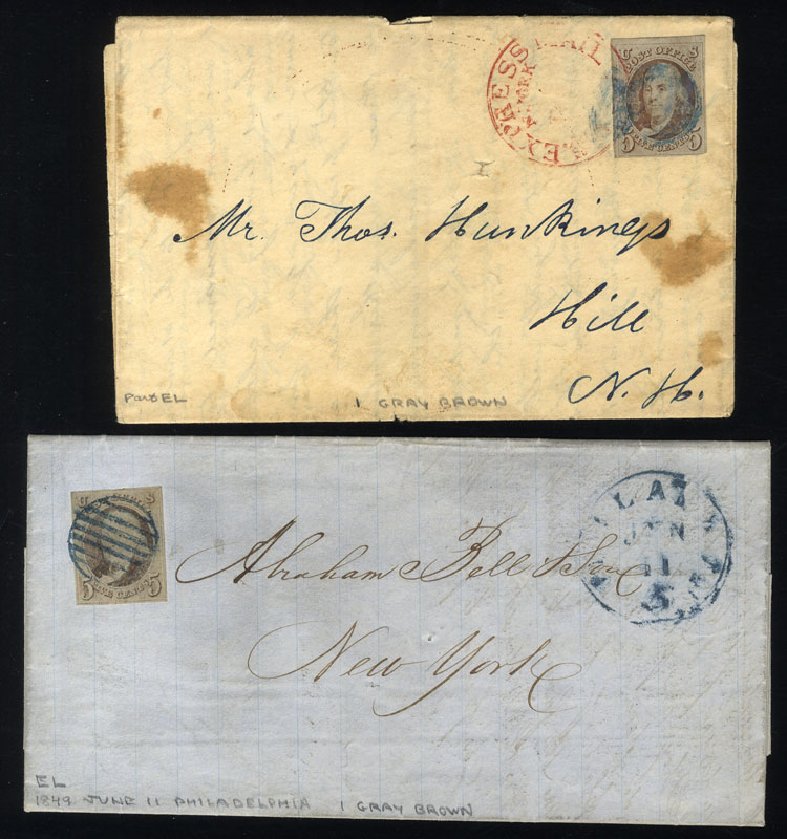 EXPRESS MAIL
N.YORK
U S
POST OFFICE
FIVE CENTS
5 5
Mr. Thos. Hunkings
Hill
N. H.
EL
1 GRAY BROWN
U S
5 5
FIVE CENTS
JUN
11
5
Abraham Bell & Son
New York
EL
1849 JUNE 11 PHILADELPHIA 1 GRAY BROWN